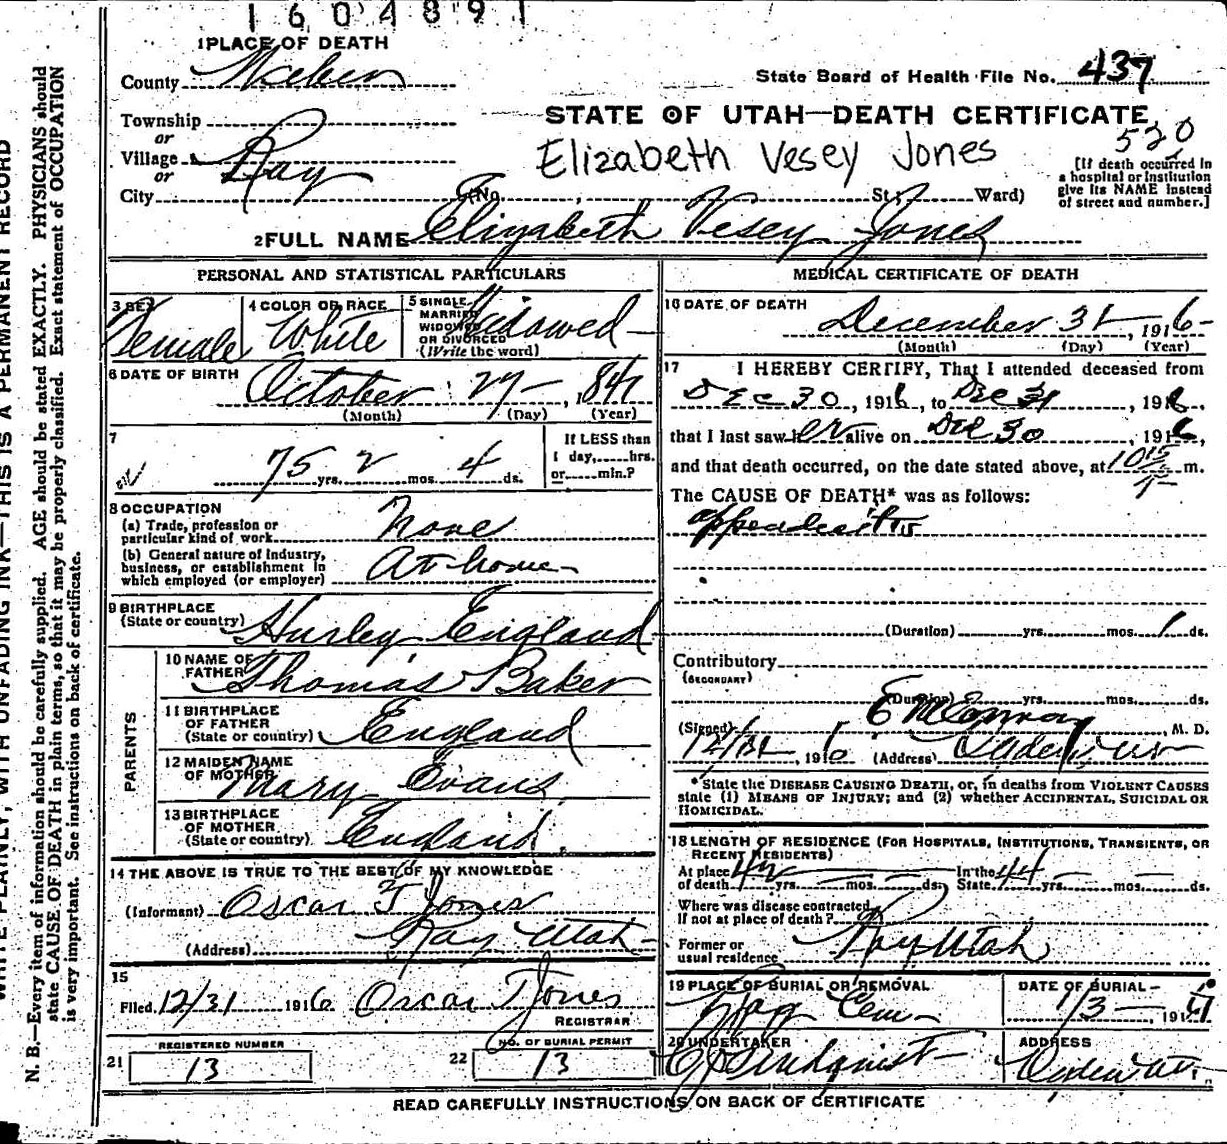 1604891
1 PLACE OF DEATH
County Weber
State Board of Health File No. 437
STATE OF UTAH—DEATH CERTIFICATE
Township
or
Village
or
City
520
Elizabeth Vesey Jones
(No. St; Ward)
[If death occurred in
a hospital or institution
give its NAME instead
of street and number.]
2 FULL NAME Elizabeth Vesey Jones
PERSONAL AND STATISTICAL PARTICULARS
3 SEX Female
4 COLOR OR RACE White
5 SINGLE
MARRIED
WIDOWED
OR DIVORCED
(Write the word) Widowed
6 DATE OF BIRTH October 27 1841
(Month) (Day) (Year)
7
75 yrs. 2 mos. 4 ds.
If LESS than
1 day, hrs.
or min.?
8 OCCUPATION
(a) Trade, profession or
particular kind of work None
(b) General nature of Industry,
business, or establishment in
which employed (or employer) At home
9 BIRTHPLACE
(State or country) Hurley England
PARENTS
10 NAME OF
FATHER Thomas Baker
11 BIRTHPLACE
OF FATHER
(State or country) England
12 MAIDEN NAME
OF MOTHER Mary Evans
13 BIRTHPLACE
OF MOTHER
(State or country) England
14 THE ABOVE IS TRUE TO THE BEST OF MY KNOWLEDGE
(Informant) Oscar T Jones
(Address) Utah
15
Filed 12/31 1916 Oscar T Jones
REGISTRAR
REGISTERED NUMBER
21 13
NO. OF BURIAL PERMIT
22 13
MEDICAL CERTIFICATE OF DEATH
16 DATE OF DEATH
December 31, 1916
(Month) (Day) (Year)
17 I HEREBY CERTIFY, That I attended deceased from
Dec 30, 1916, to Dec 31, 1916,
that I last saw her alive on Dec 30, 1916,
and that death occurred, on the date stated above, at 10 15 P m.
The CAUSE OF DEATH* was as follows:
appendicitis
(Duration) yrs. mos. 1 ds.
Contributory
(SECONDARY)
(Duration) yrs. mos. ds.
(Signed) E M Conroy, M. D.
12/31, 1916 (Address) Ogden
*State the DISEASE CAUSING DEATH, or, in deaths from VIOLENT CAUSES
state (1) MEANS OF INJURY; and (2) whether ACCIDENTAL, SUICIDAL OR
HOMICIDAL.
18 LENGTH OF RESIDENCE (FOR HOSPITALS, INSTITUTIONS, TRANSIENTS, OR
RECENT RESIDENTS)
At place
of death 42 yrs. mos. ds.
In the
State 44 yrs. mos. ds.
Where was disease contracted,
If not at place of death?
Former or
usual residence Utah
19 PLACE OF BURIAL OR REMOVAL
Cem
DATE OF BURIAL
1/3 1917
20 UNDERTAKER
Lindquist
ADDRESS
Ogden
READ CAREFULLY INSTRUCTIONS ON BACK OF CERTIFICATE
WRITE PLAINLY, WITH UNFADING INK—THIS IS A PERMANENT RECORD
N. B.—Every item of information should be carefully supplied. AGE should be stated EXACTLY. PHYSICIANS should
state CAUSE OF DEATH in plain terms, so that it may be properly classified. Exact statement of OCCUPATION
is very important. See instructions on back of certificate.